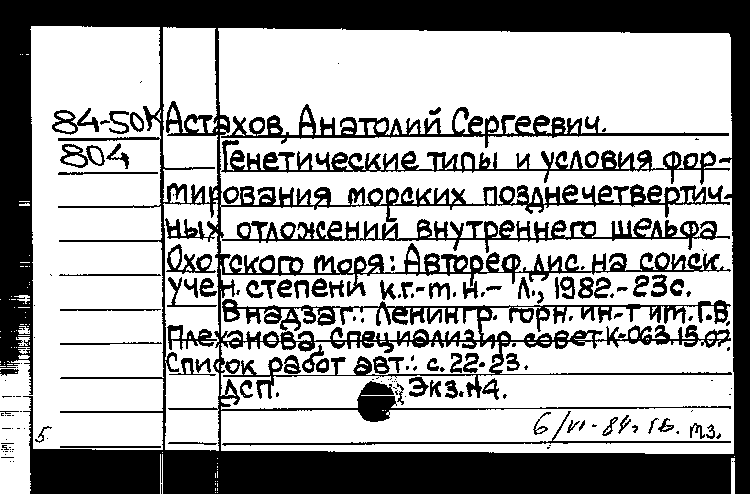 84-50К Астахов, Анатолий Сергеевич.
804 Генетические типы и условия фор-
мирования морских позднечетвертич-
ных отложений внутреннего шельфа
Охотского моря: Автореф. дис. на соиск.
учен. степени к.г.-м.н.- Л., 1982.-23с.
В надзаг.: Ленингр. горн. ин-т им. Г.В.
Плеханова, Специализир. совет К-063.15.07.
Список работ авт.: с. 22-23.
ДСП. Экз.№4.
6/VI-84г.
5